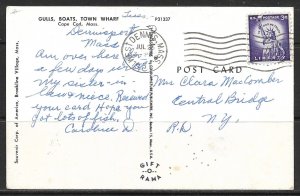 GULLS, BOATS, TOWN WHARF
Cape Cod, Mass.
P31237
Tues.
Dennisport
Mass
Been here
a few days with
my sister-in
-law & niece. Received
your card Hope you
got lots of fish.
Souvenir Corp. of America, Brookline Village, Mass.
WEST DENNIS, MASS.
JUL
PM
POST CARD
3¢
LIBERTY
Mrs Clara MacComber
Central Bridge
N.Y.
R.D.
GIFT
-O-
RAMA